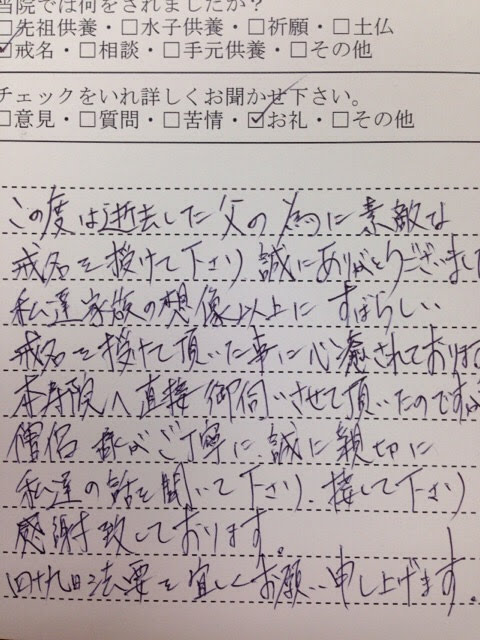 当院では何をされましたか？
□先祖供養・□水子供養・□祈願・□土仏
☑戒名・□相談・□手元供養・□その他
チェックをいれ詳しくお聞かせ下さい。
□意見・□質問・□苦情・☑お礼・□その他
この度は逝去した父の為に素敵な
戒名を授けて下さり誠にありがとうございまし
私達家族の想像以上にすばらしい
戒名を授けて頂いた事に心癒されております
本寿院へ直接御伺いさせて頂いたのですが
僧侶様がご丁寧に、誠に親切に
私達の話を聞いて下さり、接して下さり
感謝致しております。
四十九日法要を宜しくお願い申し上げます。